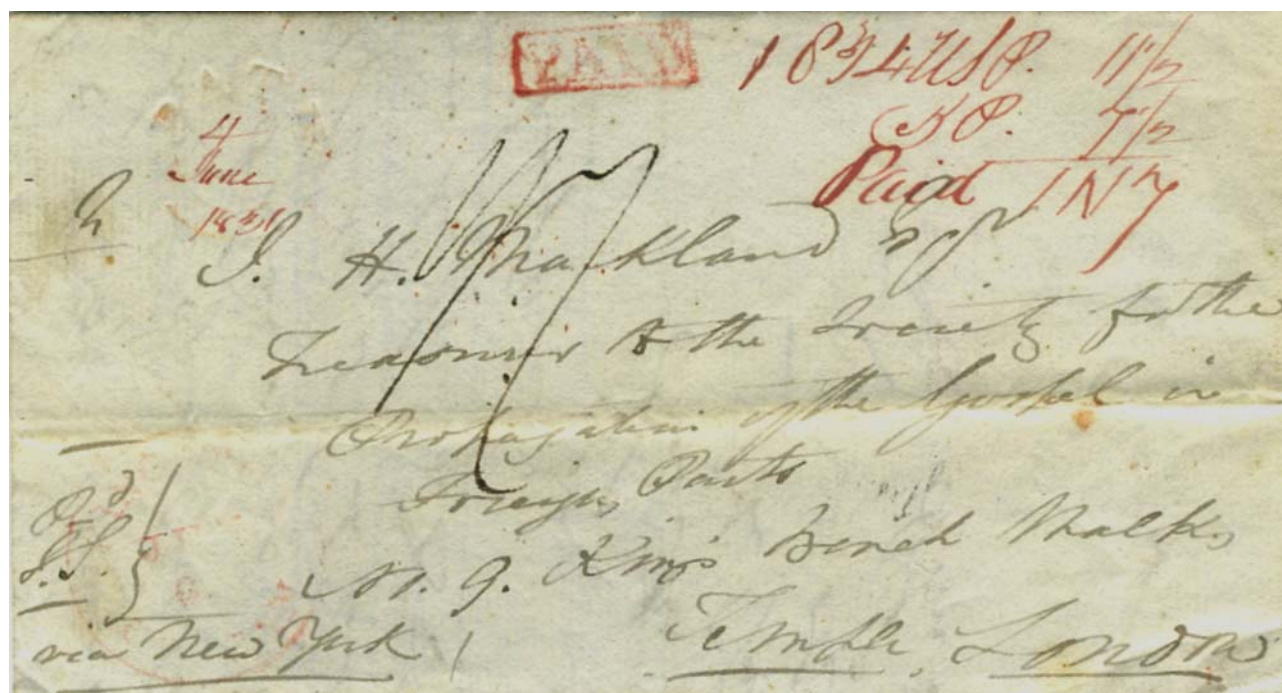 PAID
USP. 11 1/2
P. 7 1/2
Paid
4
June
1831
J. H. Markland Esqr
Treasurer to the Society for the
Propagation of the Gospel in
Foreign Parts
No. 9. King's Bench Walk,
Temple, London
Pd
via New York